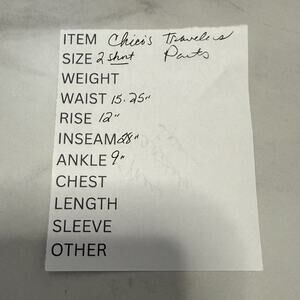 ITEM Chico's Travelers
SIZE 2 short Pants
WEIGHT
WAIST 15.25"
RISE 12"
INSEAM 28"
ANKLE 9"
CHEST
LENGTH
SLEEVE
OTHER